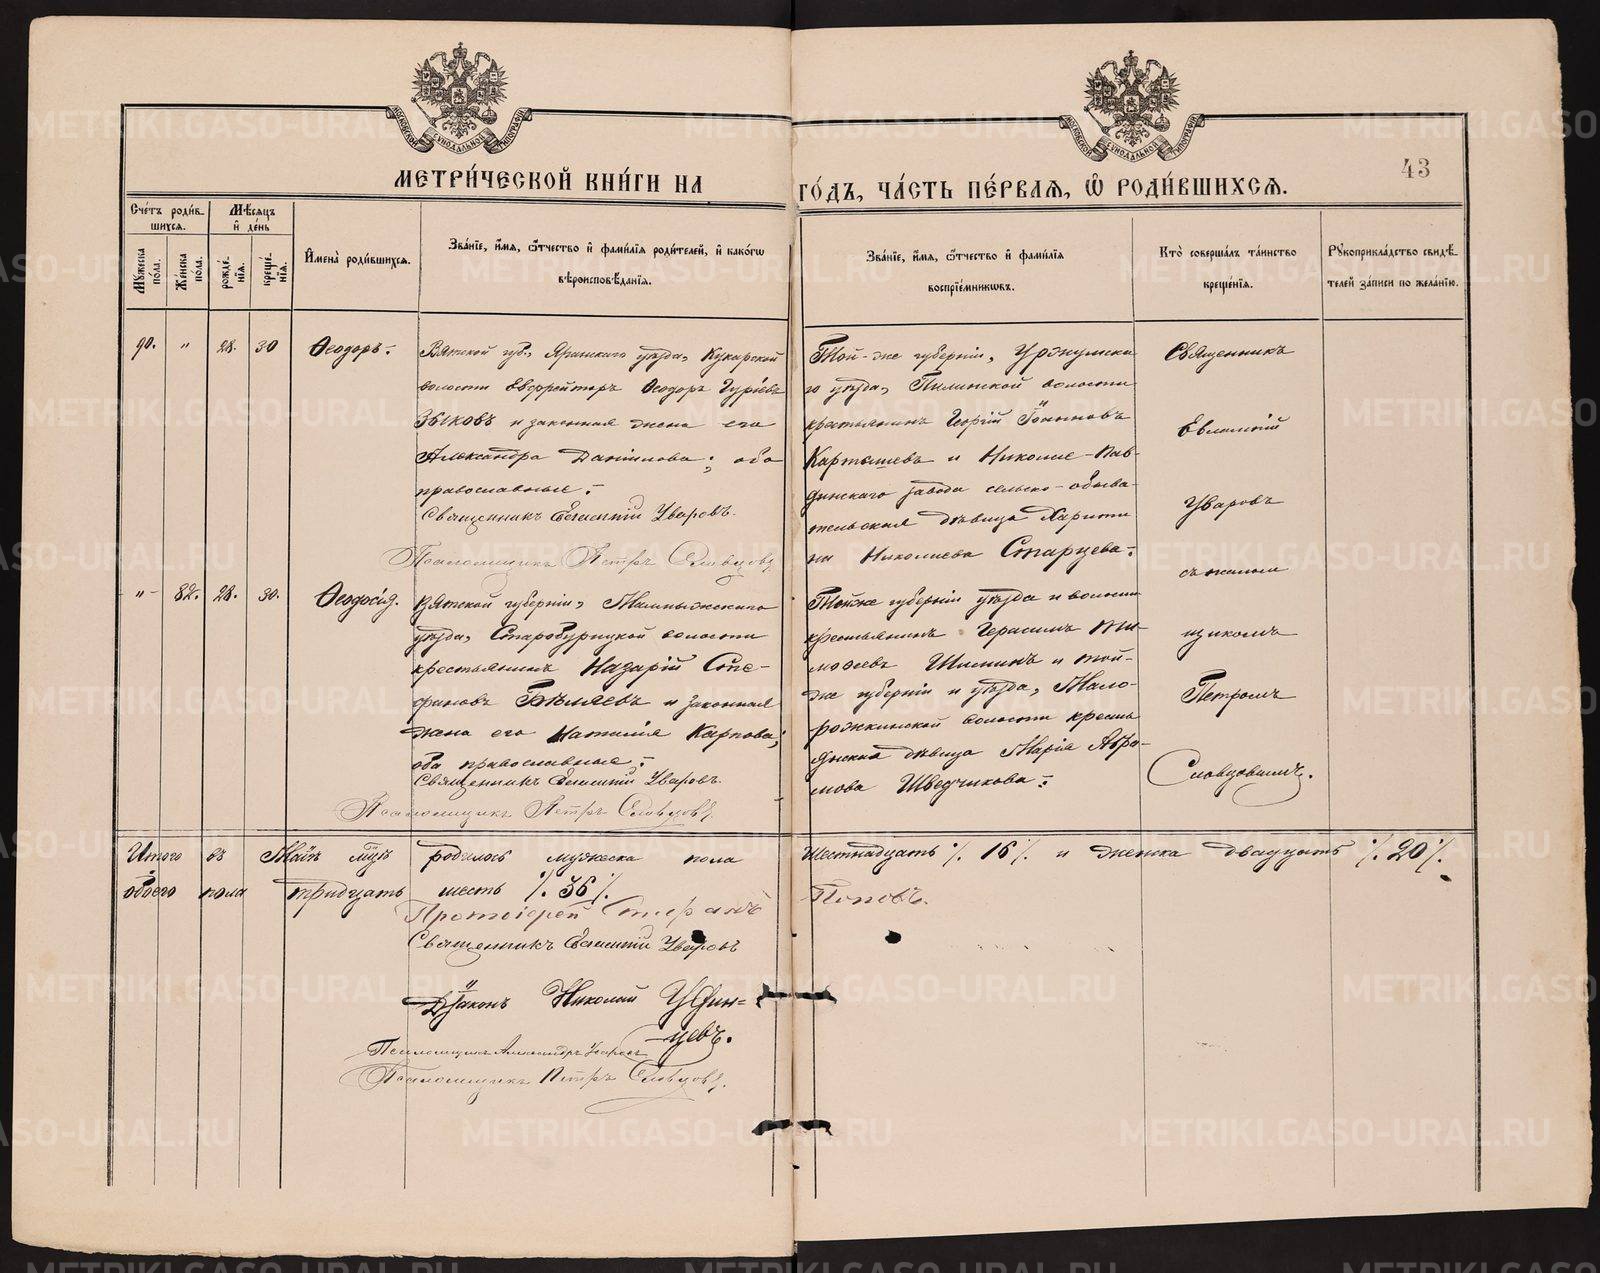 МЕТРИ́ЧЕСКОЙ КНИ́ГИ НА
ГО́ДЪ, ЧА́СТЬ ПЕ́РВАЯ, Ѽ РОДИ́ВШИХСЯ.
43
Сче́тъ роди́в-
шихся.
Мѣ́сяцъ
и҆ де́нь
Му́жеска
по́ла.
Же́нска
по́ла.
рожде́-
нія.
креще́-
нія.
И҆мена̀ роди́вшихся.
Зва́ніе, и҆́мя, ѻ҆́тчество и҆ фами́лія роди́телей, и҆ како́гѡ
вѣроисповѣ́данія.
Зва́ніе, и҆́мя, ѻ҆́тчество и҆ фами́лія
воспріе́мникѡвъ.
Кто̀ соверша́лъ та́инство
креще́нія.
Рꙋкоприкла́дство свидѣ́-
телей за́писи по жела́нію.
90. " 28. 30 Ѳеодоръ.-
Вятской губ., Яранскаго уѣзда, Кукарской
волости Ефрейторъ Ѳеодоръ Гурiевъ
Зыковъ и законная жена его
Александра Данiилова; оба
православные.-
Священникъ Евлампiй Уваровъ.
Псаломщикъ Петръ Словцовъ
Той-же губернiи, Уржумска
го уѣзда, Пилинской волости
крестьянинъ Георгiй Iоанновъ
Картышевъ и Николае-Пав-
динскаго завода сельско-обыва-
тельская дѣвица Харити
на Николаева Старцева.-
Священникъ
Евлампiй
Уваровъ
съ псалом
щикомъ
Петромъ
Словцовымъ.
"- 82. 28. 30. Ѳеодосiя.
Вятской губернiи, Малмыжскаго
уѣзда, Старобурецкой волости
крестьянинъ Назарiй Сте-
фановъ Бѣляевъ и законная
жена его Наталiя Карпова;
оба православные.-
Священникъ Евлампiй Уваровъ.
Псаломщикъ Петръ Словцовъ
Той же губернiи уѣзда и волости
крестьянинъ Герасимъ Ти-
моѳеевъ Шишкинъ и той-
же губернiи и уѣзда, Мало-
рожкинской волости кресть
янская дѣвица Марiя Авра-
мова Шведчикова.-
Итого въ Маѣ мцѣ родилось мужеска пола
Шестнадцать ./. 16 ./. и женска двадцать ./. 20 ./.
обоего пола тридцать шесть ./. 36 ./.
Протоiерей Стефанъ
Поповъ.
Священникъ Евлампiй Уваровъ
Дiаконъ Николай Уфин-
цевъ.
Псаломщикъ Александръ Уваровъ
Псаломщикъ Петръ Словцовъ